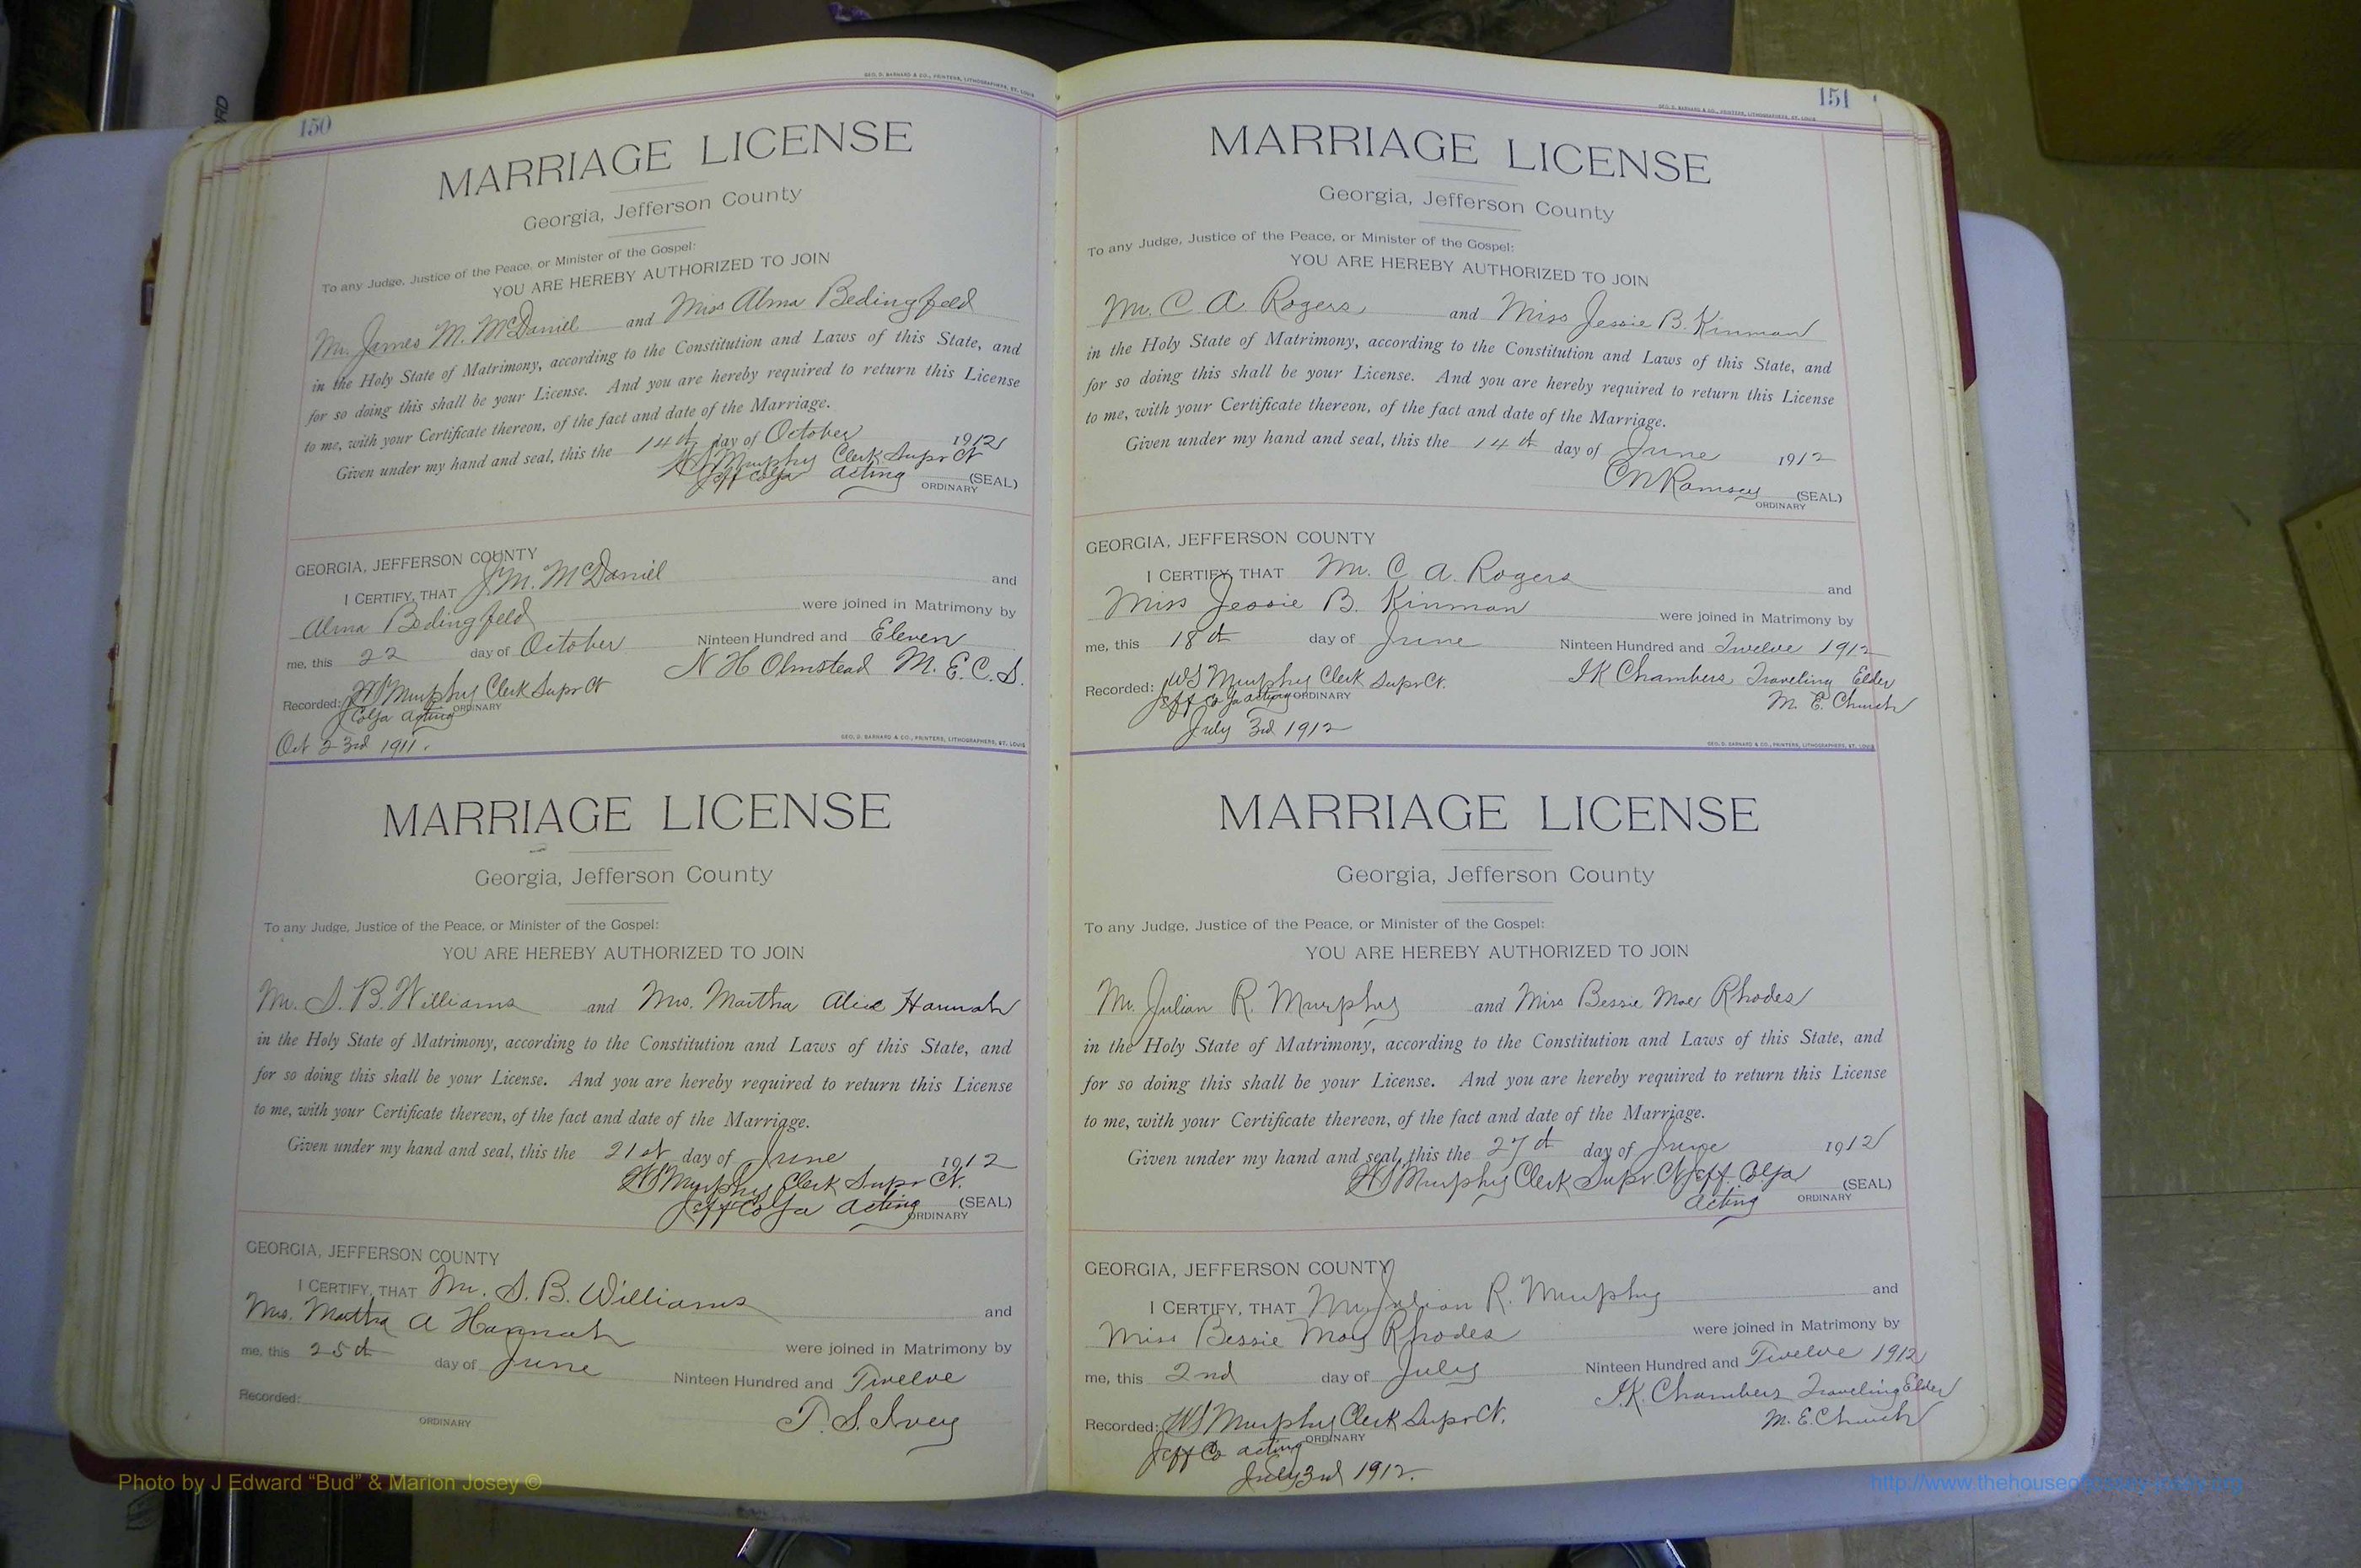 150
GEO. D. BARNARD & CO., PRINTERS, LITHOGRAPHERS, ST. LOUIS
MARRIAGE LICENSE
Georgia, Jefferson County
To any Judge, Justice of the Peace, or Minister of the Gospel:
YOU ARE HEREBY AUTHORIZED TO JOIN
Mr. James M. McDaniel and Miss Alma Bedingfeld
in the Holy State of Matrimony, according to the Constitution and Laws of this State, and
for so doing this shall be your License. And you are hereby required to return this License
to me, with your Certificate thereon, of the fact and date of the Marriage.
Given under my hand and seal, this the 14th day of October 1912
WS Murphy Clerk Supr Ct
Jeff Co Ga acting (SEAL)
ORDINARY
GEORGIA, JEFFERSON COUNTY
I CERTIFY, THAT J.M. McDaniel and
Alma Bedingfeld were joined in Matrimony by
me, this 22 day of October Ninteen Hundred and Eleven
N H Olmstead M. E. C. S.
Recorded: WS Murphy Clerk Supr Ct
ORDINARY
J Co Ga acting
Oct 23rd 1911.
GEO. D. BARNARD & CO., PRINTERS, LITHOGRAPHERS, ST. LOUIS
MARRIAGE LICENSE
Georgia, Jefferson County
To any Judge, Justice of the Peace, or Minister of the Gospel:
YOU ARE HEREBY AUTHORIZED TO JOIN
Mr. S. B. Williams and Mrs. Martha Alice Hannah
in the Holy State of Matrimony, according to the Constitution and Laws of this State, and
for so doing this shall be your License. And you are hereby required to return this License
to me, with your Certificate thereon, of the fact and date of the Marriage.
Given under my hand and seal, this the 21st day of June 1912
WS Murphy Clerk Supr Ct.
Jeff Co Ga acting (SEAL)
ORDINARY
GEORGIA, JEFFERSON COUNTY
I CERTIFY, THAT Mr. S. B. Williams and
Mrs. Martha A Hannah were joined in Matrimony by
me, this 25th day of June Ninteen Hundred and Twelve
Recorded:
ORDINARY
T. S. Ivey
151
GEO. D. BARNARD & CO., PRINTERS, LITHOGRAPHERS, ST. LOUIS
MARRIAGE LICENSE
Georgia, Jefferson County
To any Judge, Justice of the Peace, or Minister of the Gospel:
YOU ARE HEREBY AUTHORIZED TO JOIN
Mr. C A. Rogers and Miss Jessie B. Kinman
in the Holy State of Matrimony, according to the Constitution and Laws of this State, and
for so doing this shall be your License. And you are hereby required to return this License
to me, with your Certificate thereon, of the fact and date of the Marriage.
Given under my hand and seal, this the 14th day of June 1912
CN Ramsey (SEAL)
ORDINARY
GEORGIA, JEFFERSON COUNTY
I CERTIFY, THAT Mr. C A. Rogers and
Miss Jessie B. Kinman were joined in Matrimony by
me, this 18th day of June Ninteen Hundred and Twelve 1912
J.K Chambers, Traveling Elder
M. E. Church
Recorded: WS Murphy Clerk Supr Ct.
Jeff Co Ga acting ORDINARY
July 3rd 1912
GEO. D. BARNARD & CO., PRINTERS, LITHOGRAPHERS, ST. LOUIS
MARRIAGE LICENSE
Georgia, Jefferson County
To any Judge, Justice of the Peace, or Minister of the Gospel:
YOU ARE HEREBY AUTHORIZED TO JOIN
Mr. Julian R. Murphy and Miss Bessie Mae Rhodes
in the Holy State of Matrimony, according to the Constitution and Laws of this State, and
for so doing this shall be your License. And you are hereby required to return this License
to me, with your Certificate thereon, of the fact and date of the Marriage.
Given under my hand and seal, this the 27th day of June 1912
WS Murphy Clerk Supr. Ct Jeff. Co Ga (SEAL)
acting ORDINARY
GEORGIA, JEFFERSON COUNTY
I CERTIFY, THAT Mr Julian R. Murphy and
Miss Bessie May Rhodes were joined in Matrimony by
me, this 2nd day of July Ninteen Hundred and Twelve 1912
J.K. Chambers Traveling Elder
M. E. Church
Recorded: WS Murphy Clerk Supr Ct.
Jeff Co acting ORDINARY
July 3rd 1912.
Photo by J Edward “Bud” & Marion Josey ©